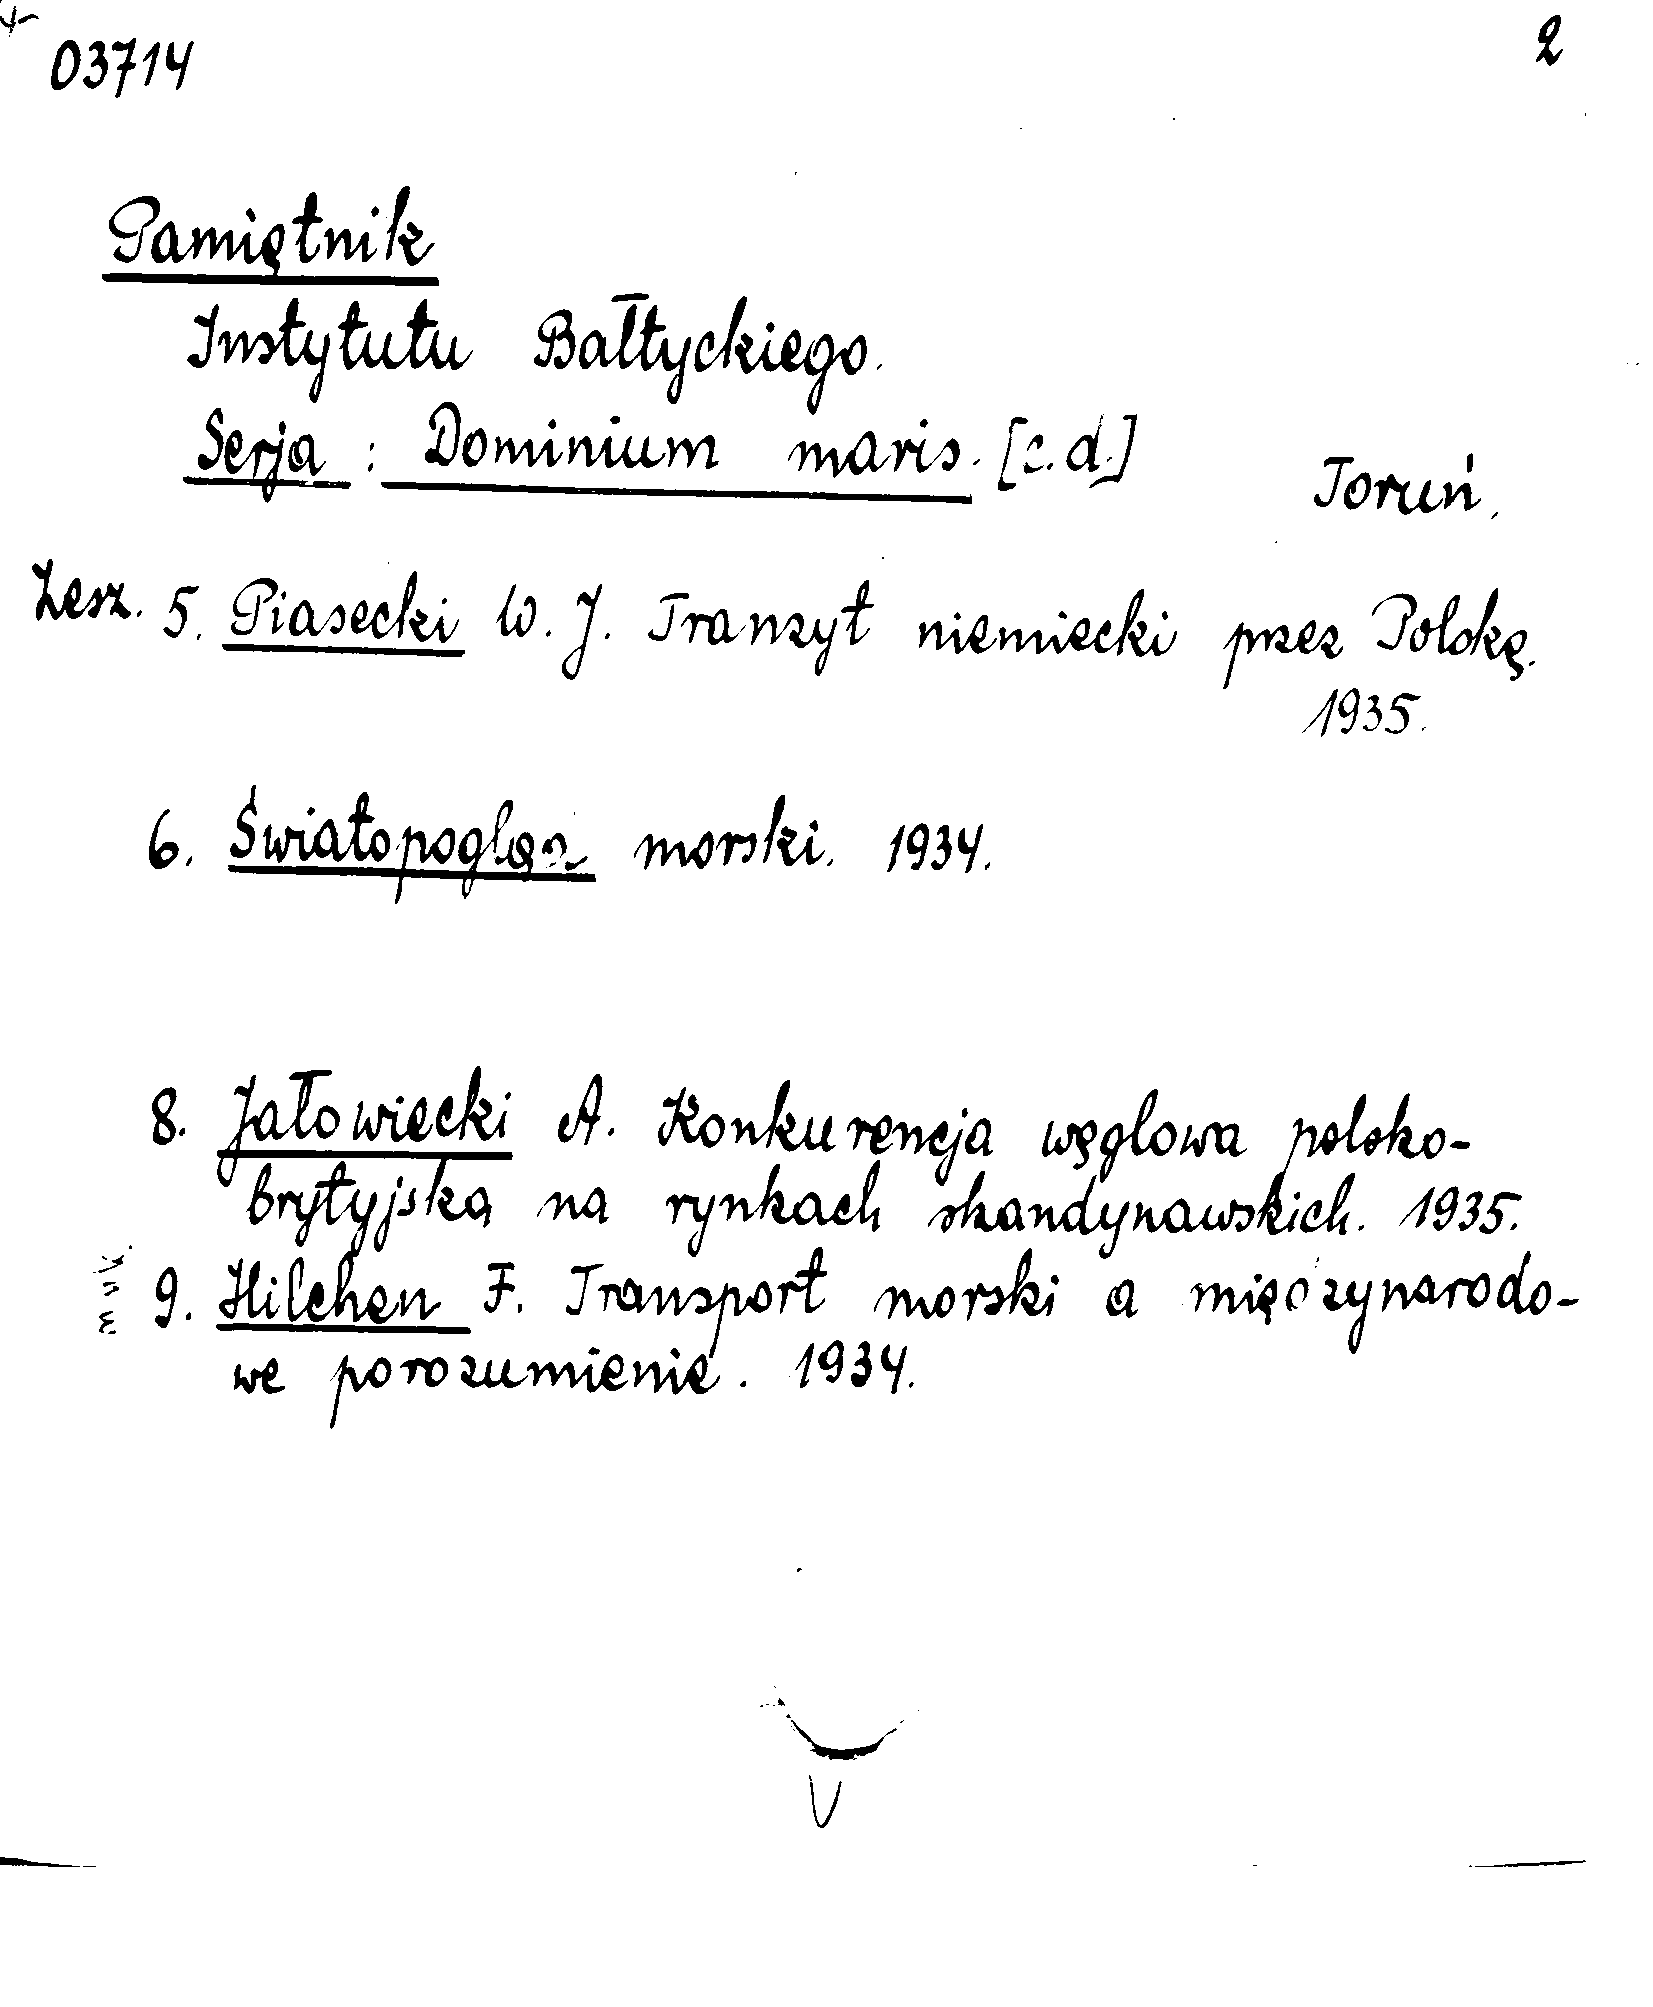 03714 2
Pamiętnik
Instytutu Bałtyckiego.
Serja : Dominium maris. [c.d.]
Toruń.
Zesz. 5. Piasecki W. J. Tranzyt niemiecki przez Polskę.
1935.
6. Światopogląd morski. 1934.
8. Jałowiecki A. Konkurencja węglowa polsko-
brytyjska na rynkach skandynawskich. 1935.
9. Hilchen F. Transport morski a międzynarodo-
we porozumienie. 1934.